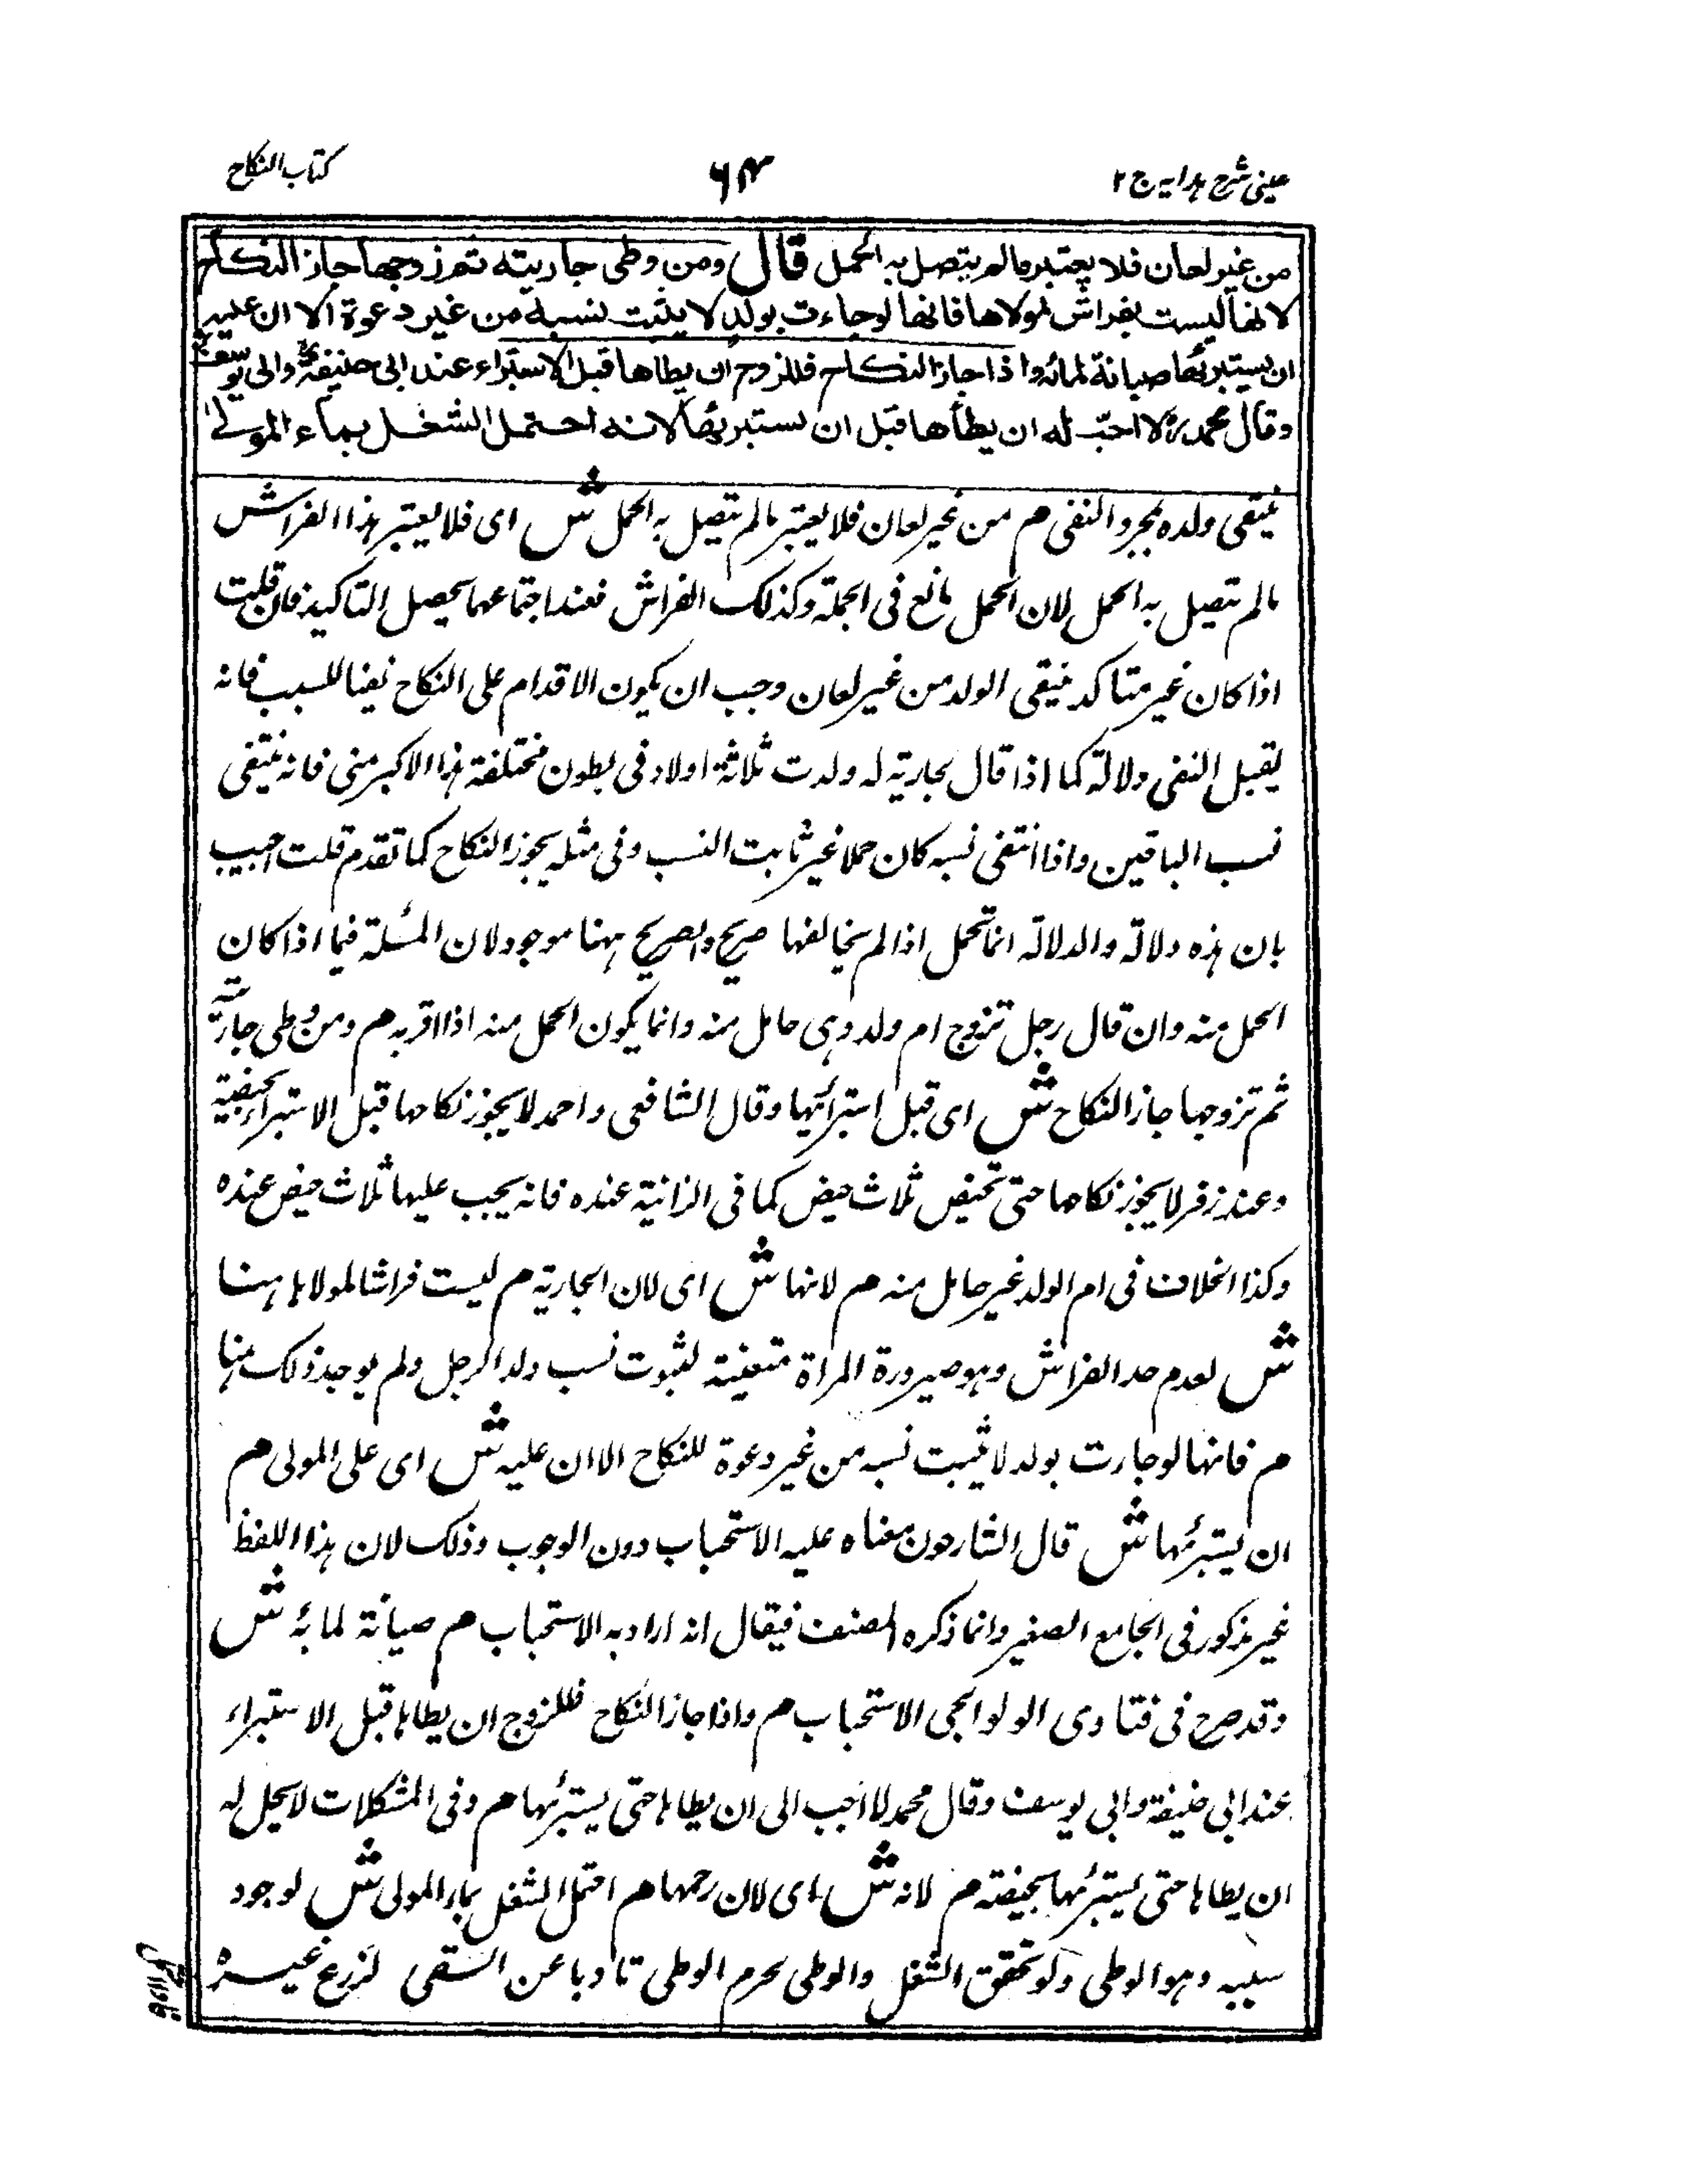 عینی شرح ہدایہ ج ۲
۶۴
کتاب النکاح
من غیر لعان فلا یعتبر مالم یتصل بہ الحمل قال ومن وطی جاریتہ ثم زوجھا جاز النکاح
لانھا لیست بفراش لمولاھا فانھا لو جاءت بولد لا یثبت نسبہ من غیر دعوة الا ان علیہ
ان یستبرئھا صیانة لمائہ واذا جاز النکاح فللزوج ان یطاھا قبل الاستبراء عند ابی حنیفةؒ وابی یوسفؒ
وقال محمدؒ لا احبّ لہ ان یطأھا قبل ان یستبرئھا لانہ احتمل الشغل بماء المولی
ینتفی ولدہ بمجرد النفی م من غیر لعان فلا یعتبر مالم یتصل بہ الحمل ش ای فلا یعتبر ہذا الفراش
مالم یتصل بہ الحمل لان الحمل مانع فی الجملة وکذلک الفراش فعند اجتماعہما یحصل التاکید فان قلت
اذا کان غیر متاکد ینتفی الولد من غیر لعان وجب ان یکون الاقدام علی النکاح نفیا للنسب فانہ
یقبل النفی دلالة کما اذا قال لجاریة لہ ولدت ثلاثة اولاد فی بطون مختلفة ہذا الاکبر منی فانہ ینتفی
نسب الباقین واذا انتفی نسبہ کان حملا غیر ثابت النسب وفی مثلہ یجوز النکاح کما تقدم قلت اجیب
بان ہذہ دلالة والدلالة انما تعمل اذا لم یخالفہا صریح والصریح ہہنا موجود لان المسئلة فیما اذا کان
الحمل منہ وان قال رجل تزوج ام ولد وہی حامل منہ وانما یکون الحمل منہ اذا اقر بہ م ومن وطی جاریتہ
ثم تزوجہا جاز النکاح ش ای قبل استبرائہا وقال الشافعی واحمد لا یجوز نکاحہا قبل الاستبراء بحیضة
وعند زفر لا یجوز نکاحہا حتی تحیض ثلاث حیض کما فی الزانیة عندہ فانہ یجب علیہا ثلاث حیض عندہ
وکذا الخلاف فی ام الولد غیر حامل منہ م لانہا ش ای لان الجاریة م لیست فراشا لمولاہا ہہنا
ش لعدم حد الفراش وہو صیرورة المراة متعینة لثبوت نسب ولد الرجل ولم یوجد ذلک ہہنا
م فانہا لو جاءت بولد لا یثبت نسبہ من غیر دعوة للنکاح الا ان علیہ ش ای علی المولی م
ان یستبرئہا ش قال الشارحون معناہ علیہ الاستحباب دون الوجوب وذلک لان ہذا اللفظ
غیر مذکور فی الجامع الصغیر وانما ذکرہ المصنف فیقال انہ اراد بہ الاستحباب م صیانة لمائہ ش
وقد صرح فی فتاوی الولوالجی الاستحباب م واذا جاز النکاح فللزوج ان یطاہا قبل الاستبراء
عند ابی حنیفة وابی یوسف وقال محمد لا احب الی ان یطاہا حتی یستبرئہا م وفی المشکلات لا یحل لہ
ان یطاہا حتی یستبرئہا بحیضة م لانہ ش ای لان رحمہا م احتمل الشغل بماء المولی ش لوجود
سببہ وہو الوطی ولو تحقق الشغل والوطی یحرم الوطی تادبا عن السقی لزرع غیرہ